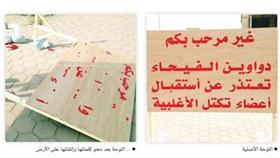 غير مرحب بكم
دواوين الفيحاء
تعتذر عن أستقبال
أعضاء تكتل الأغلبية
اللوحة الأصلية
.. اللوحة بعد محو كلماتها وإلقائها على الأرض